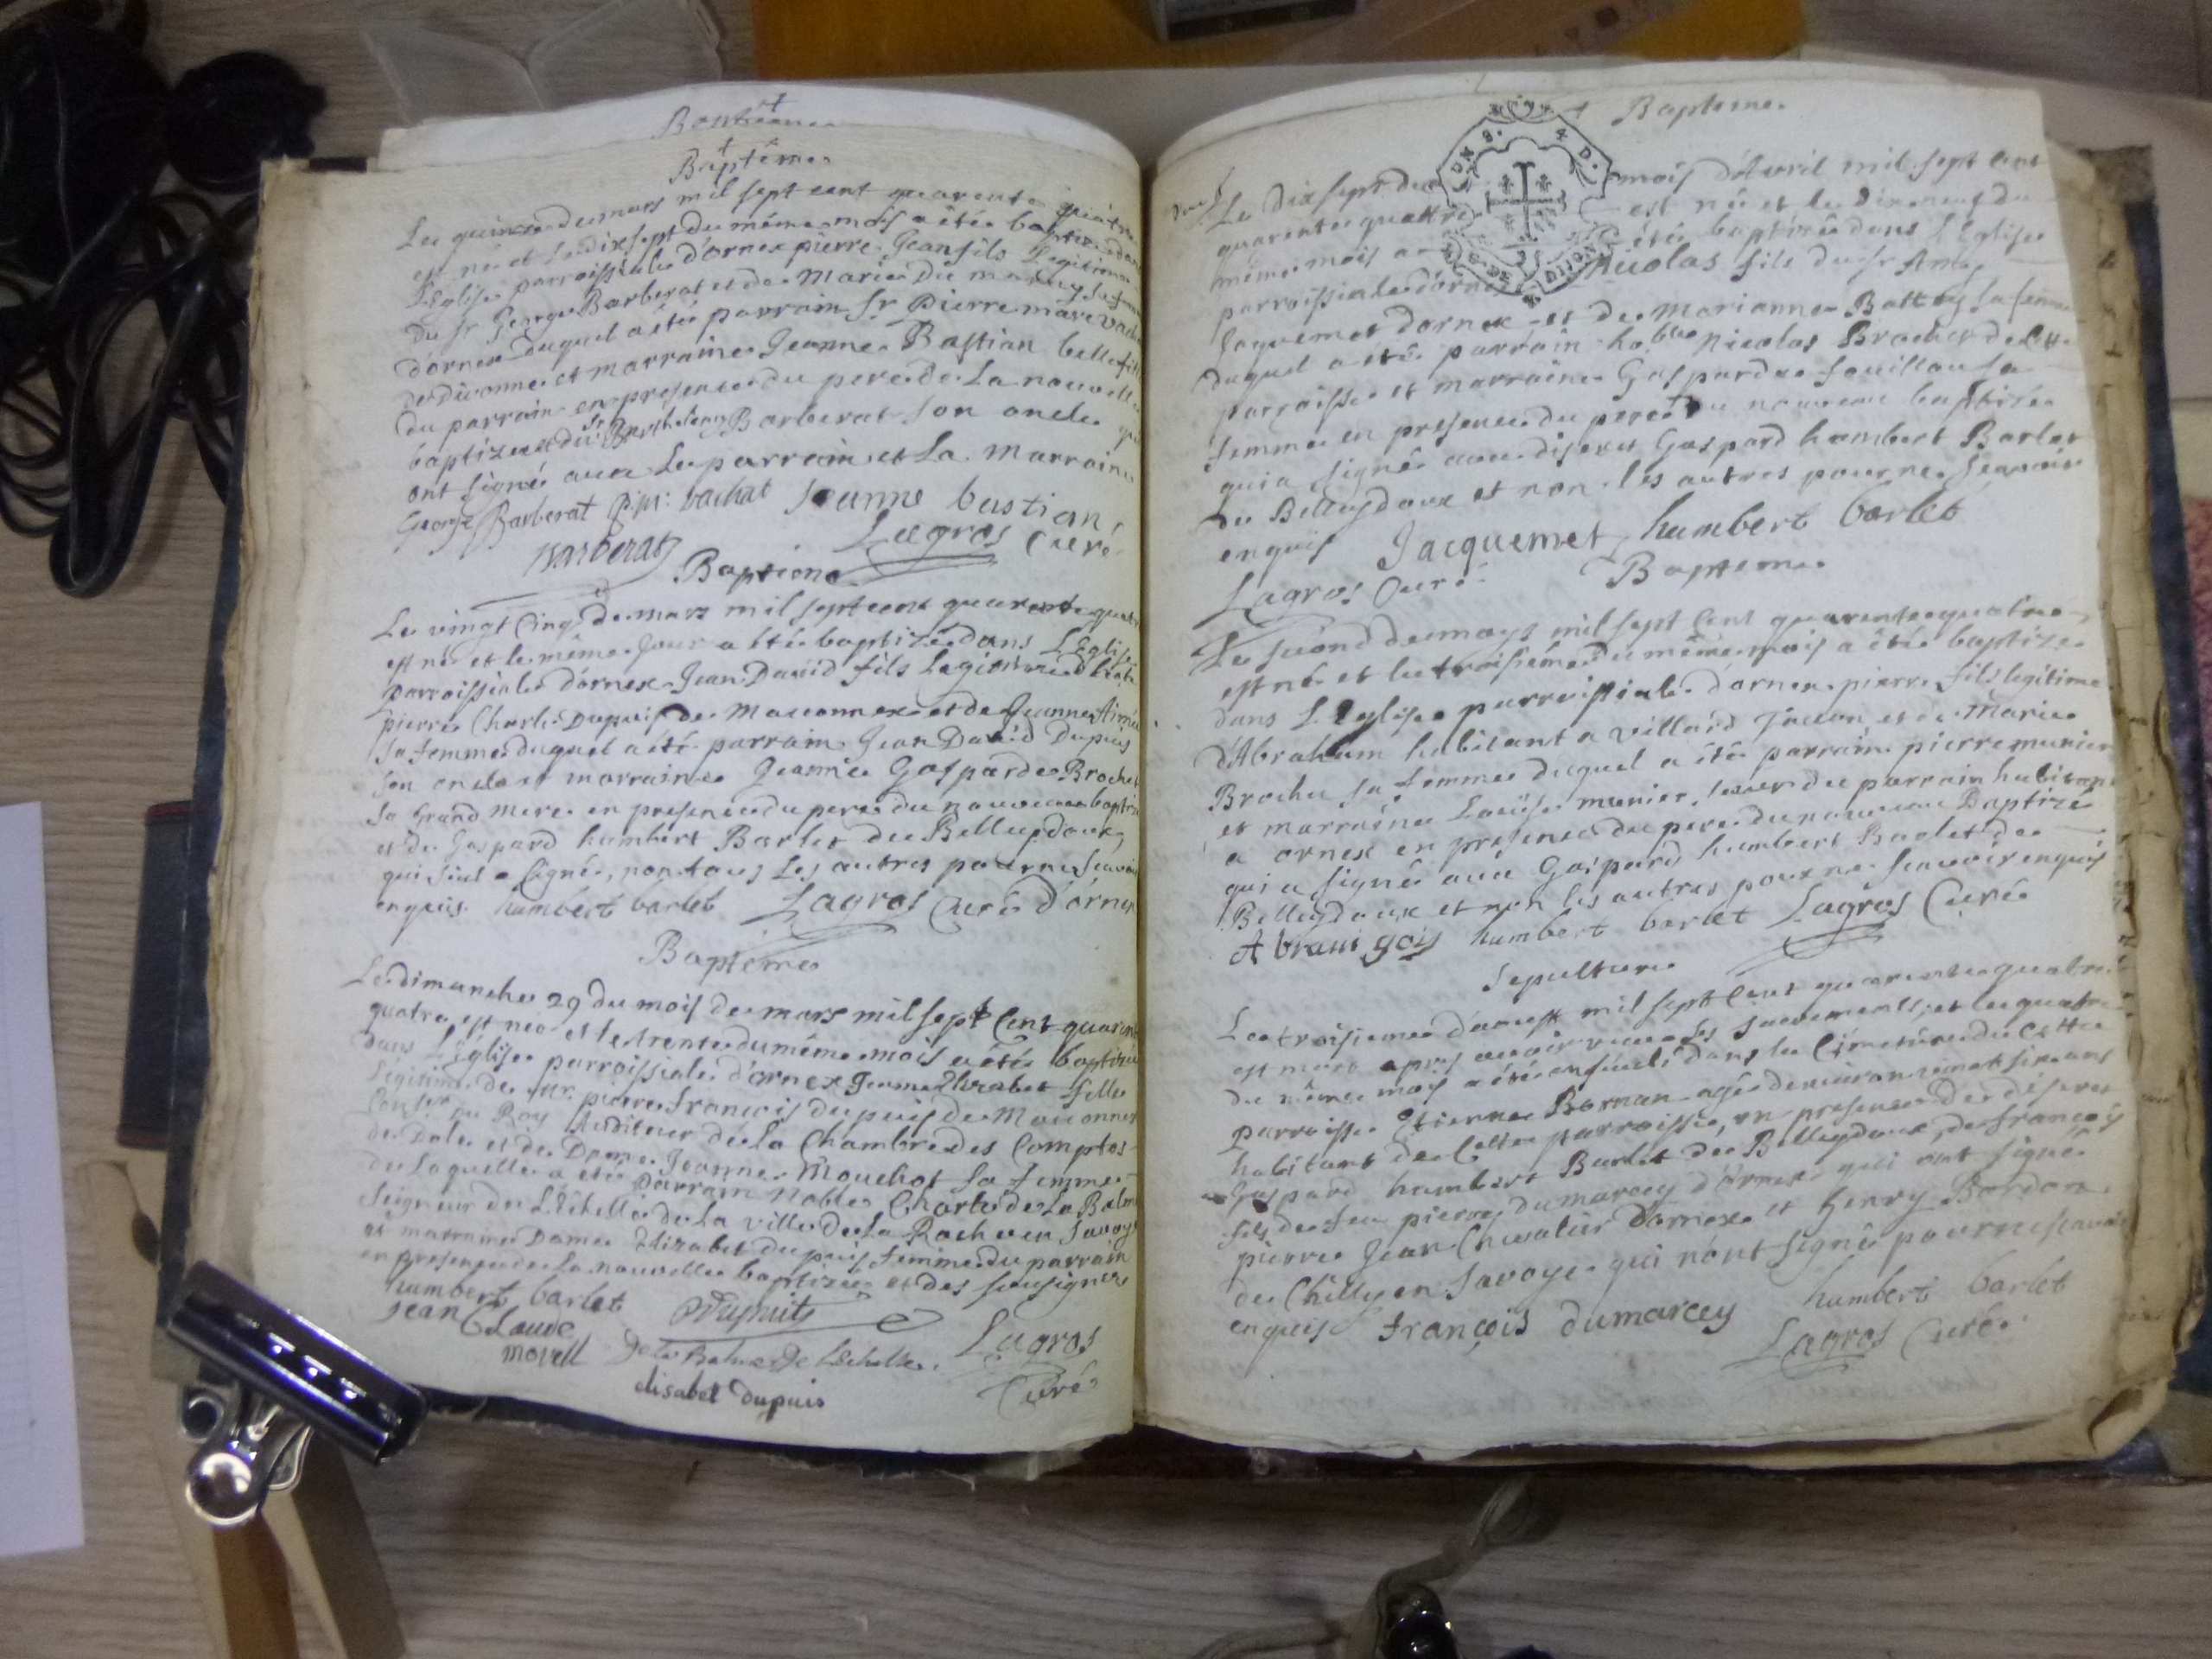 Baptême
Baptême
Le quinze de mars mil sept cent quarente quatre
est né et le dix sept du même mois a étée baptizé dans
L'Eglise parroissiale d'ornex pierre Jean fils Legitime
du Sr George Barberat et de Marie Du sa femme
d'ornex duquel a été parrain Sr Pierre marc
de Divonne et marraine Jeanne Bastian belle fille
du parrain en presence du pere de La nouvelle
baptizée et du Sr Barthelemy Barberat son oncle qui
ont signé avec Le parrain et La Marraine
George Barberat P: M: vachat Jeanne bastian
Barberat Lagros Curé
Baptême
Le vingt Cinq de mars mil sept cent quarente quatre
est né et le même Jour a étée baptizé dans L'Eglise
parroissiale d'ornex Jean David fils Legitime d'
pierre Charle Dupuis de Maconnex et de Jeanne Aimée
sa femme duquel a été parrain Jean David Dupuis
son oncle et marraine Jeanne Gasparde Brochet
sa Grand mere en presence du pere du nouveau baptizé
et de Gaspard humbert Barlet de Belleydoux,
qui seul a signé, non tous Les autres pour ne scavoir
enquis humbert barlet Lagros Curé d'ornex
Baptême
Le dimanche 29 du mois de mars mil sept Cent quarante
quatre est née et le trente du même mois a étée baptizée
dans L'Église parroissiale d'ornex Jeanne Elizabet fille
Légitime de Mr. pierre François dupuis de Maconnex
Conser du Roy Auditeur de la Chambre des Comptes
de Dole et de Dame Jeanne Mouchot sa femme
de Laquelle a étée parrain Noble Charle de La Balme
Seigneur de L'Echelle de La ville de La Roche en Savoye
et marraine Dame Elizabet dupuis femme du parrain
en presence de La nouvelle baptizée et des soussignez
humbert barlet Dupuits
Jean Claude
movell De la Balme De Lechelle. Lagros
elisabet dupuis Curé
Baptême
Le Dix sept du mois d'Avril mil sept Cent
quarente quattre est né et le Dix neuf du
même mois a étée baptizé dans L'Eglise
parroissiale d'ornex Nicolas fils du Sr
Jaquemet d'ornex et de Marianne sa femme
duquel a été parrain hoble Nicolas Brochet de Cette
parroisse et marraine Gasparde fouilloux sa
femme en presence du pere du nouveau baptizé
qui a signé avec discret Gaspard humbert Barlet
de Belleydoux et non les autres pour ne scavoir
enquis Jacquemet humbert barlet
Lagros Curé
Baptême
Le second de mays mil sept Cent quarente quatre
est né et le troisiéme du même mois a étée baptizé
dans L'Eglise parroissiale d'ornex pierre fils legitime
d'Abraham habitant a villard Tacon et de Marie
Brochu sa femme duquel a été parrain pierre munier
et marraine Louïse munier, soeur du parrain habitans
a ornex en presence du pere du nouveau Baptizé
qui a signé avec Gaspard humbert Barlet de
Belleydoux et non les autres pour ne scavoir enquis
Abram goy humbert barlet Lagros Curé
Sepulture
Le troisieme d'aoust mil sept Cent quarente quatre
est mort apres avoir receu Les Sacrements, et le quatre
du même mois a été enséveli dans le Cimetière de Cette
parroisse Etienne Bornan agé denviron vingt six ans
habitant de Cette parroisse, en presence de discret
Gaspard humbert Barlet de Belleydoux, de François
fils de feu pierre dumarcey d'ornex qui ont signé
pierre Jean Chevalier d'ornex et henry Bordon
de Chilly en Savoye qui n'ont signé pour ne scavoir
enquis François dumarcey humbert barlet
Lagros Curé